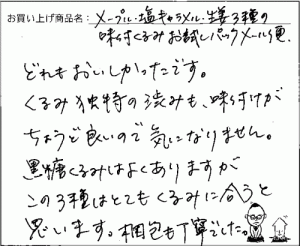 お買い上げ商品名: メープル・塩キャラメル・生姜3種の
味付くるみお試しパックメール便
どれもおいしかったです。
くるみ独特の渋みも、味付けが
ちょうど良いので気になりません。
黒糖くるみはよくありますが
この3種はとてもくるみに合うと
思います。梱包も丁寧でした。